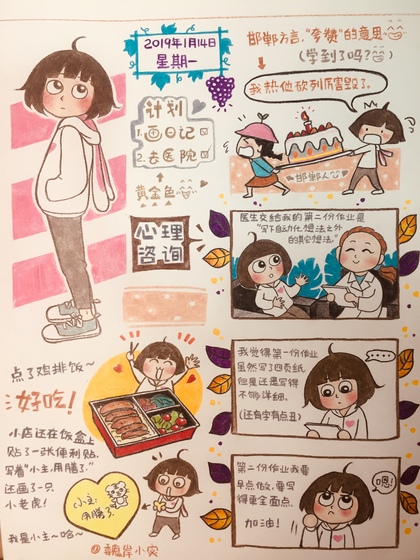 2019年1月14日
星期一
计划
1.画日记
2.去医院
黄金色
心理
咨询
邯郸方言,"夸赞"的意思
(学到了吗?)
我热他砍列厉害毁了。
邯郸人
医生交给我的第二份作业是
"写下自动化想法之外
的其它想法。"
我觉得第一份作业
虽然写了四页纸
但是还是写得
不够详细。
(还有字有点丑)
第二份作业我要
早点做,要写
得更全面点
加油!
嗯!
点了鸡排饭~
好吃!
小店还在饭盒上
贴了一张便利贴
写着"小主,用膳了."
还画了一只
小老虎!
小主,
用膳了.
我是小主~哈~